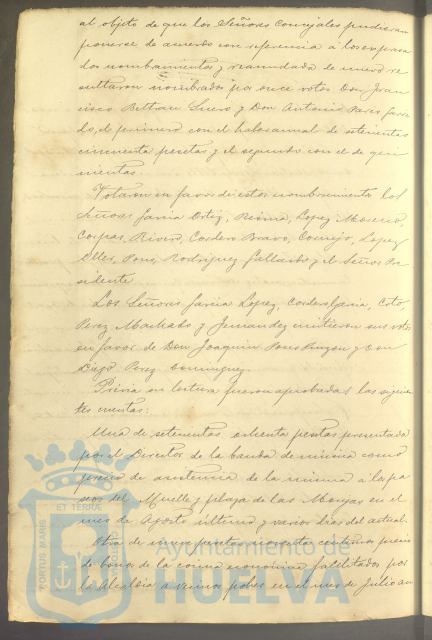 al objeto de que los Señores Concejales pudieran
ponerse de acuerdo con referencia á los expresa
dos nombramientos y reanudada de nuevo re
sultaron nombrados por once votos Don Fran
cisco Beltran Suero y Don Antonio Pares Garri
do, el primero con el haber anual de setecientas
cincuenta pesetas y el segundo con el de quin
nientas.
Votaron en favor de estos nombramientos los
Señores Garcia Ortiz, Lopez Moreno,
Corpas, Rivero, Cordero Bravo, Cornejo, Lopez
Pons, Rodriguez Gallardo y el Señor Pre
sidente.
Los Señores Garcia Lopez, Cordero Garcia, Coto,
Perez Machado y Fernandez emitieron sus votos
en favor de Don Joaquin Pons Pinzon y Don
Diego Perez Dominguez.
Prévia su lectura fueron aprobadas las siguien
tes cuentas:
Una de setecientas ochenta pesetas presentada
por el Director de la banda de musica como
precio de asistencia de la misma á los pa
seos del Muelle y plaza de las Monjas en el
mes de Agosto ultimo y varios dias del actual.
Otra de nueve pesetas noventa centimos precio
de bonos de la cocina economica facilitados por
la Alcaldia a varios pobres en el mes de Julio an
PORTUS MARIS
ET TERRÆ
CUSTODIA
Ayuntamiento de
HUELVA